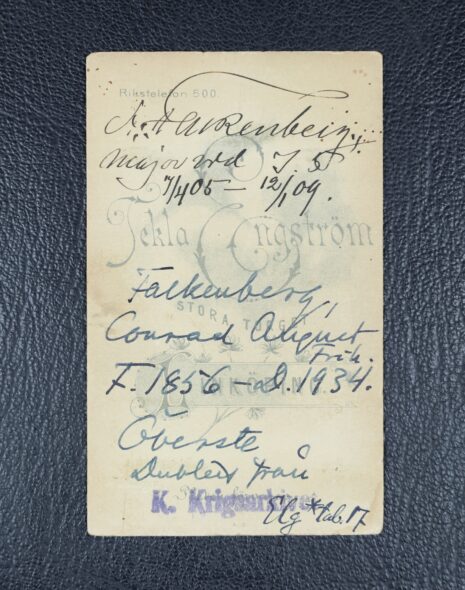 Rikstelefon 500.
A. Falkenberg.
Major vid I. 5
7/4 05 – 12/1 09.
Tekla Engström
Falkenberg,
STORA TORGET
Conrad August
Frih.
F. 1856 – D. 1934.
LINKÖPING
Överste
Dublett från
K. Krigsarkivet
tab. 17